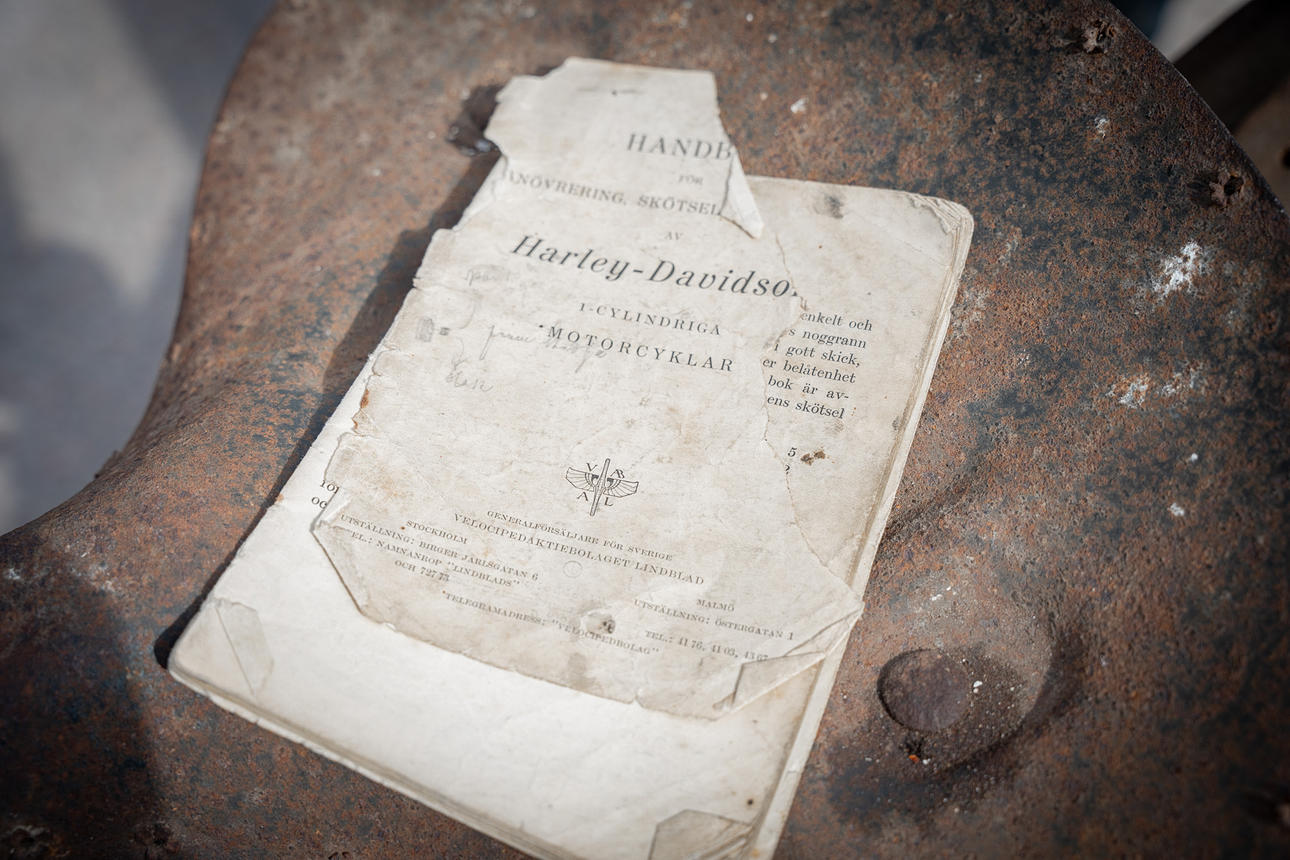 HANDB
FÖR
ANÖVRERING, SKÖTSEL
AV
Harley-Davidso
1-CYLINDRIGA
MOTORCYKLAR
enkelt och
s noggrann
i gott skick,
er belåtenhet
bok är av-
ens skötsel
5
V
A L
GENERALFÖRSÄLJARE FÖR SVERIGE
VELOCIPEDAKTIEBOLAGET LINDBLAD
STOCKHOLM
UTSTÄLLNING: BIRGER JARLSGATAN 6
TEL.: NAMNANROP "LINDBLADS"
OCH 727 73
MALMÖ
UTSTÄLLNING: ÖSTERGATAN 1
TEL.: 41 76, 41 03, 43 67
TELEGRAMADRESS: "VELOCIPEDBOLAG"